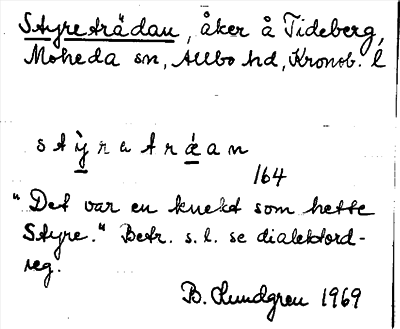 Styreträdan, åker å Tideberg,
Moheda sn, Allbo hd, Kronob. l
stỳretràan
164
"Det var en knekt som hette
Styre." Betr. s. l. se dialektord-
reg.
B. Lundgren 1969